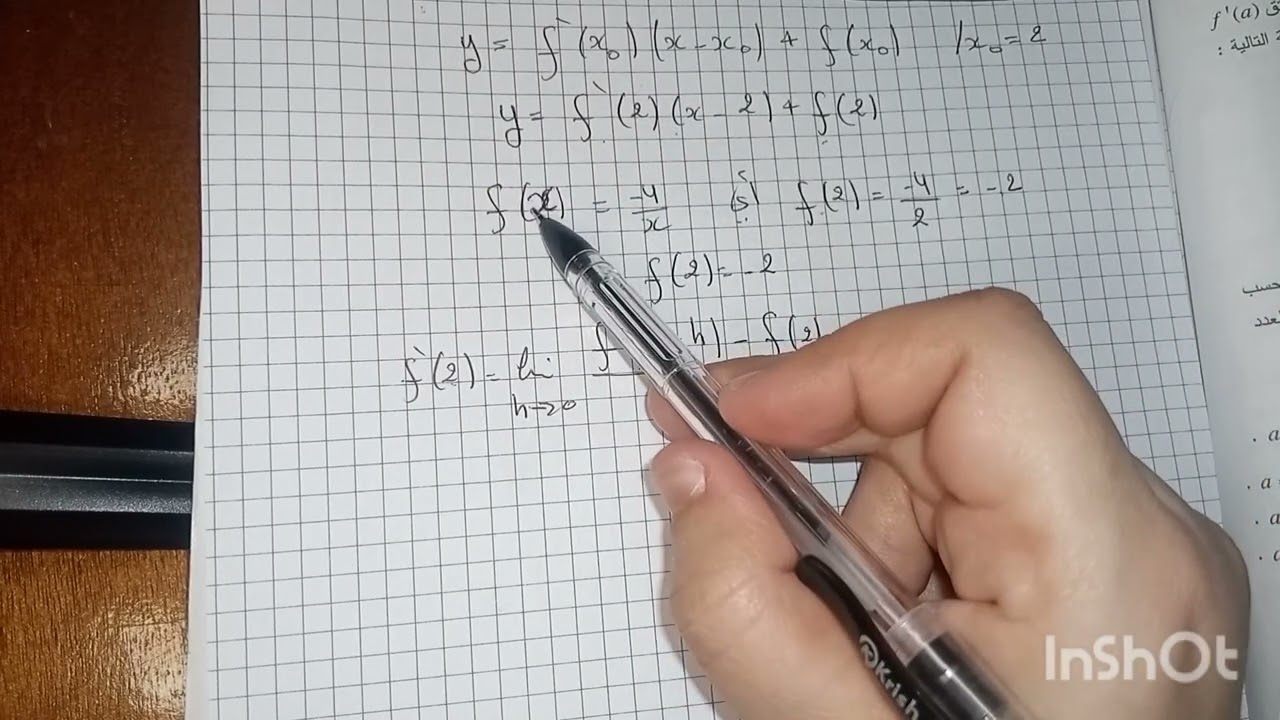 y = f`(x₀)(x-x₀) + f(x₀) /x₀=2
y = f`(2)(x-2)+f(2)
f(x) = -4/x f(2) = -4/2 = -2
f(2)=-2
f`(2) = lim h→0 f h) - f(2)
f'(a)
التالية :
حسب
. a
. a
. a
Krish
InShOt